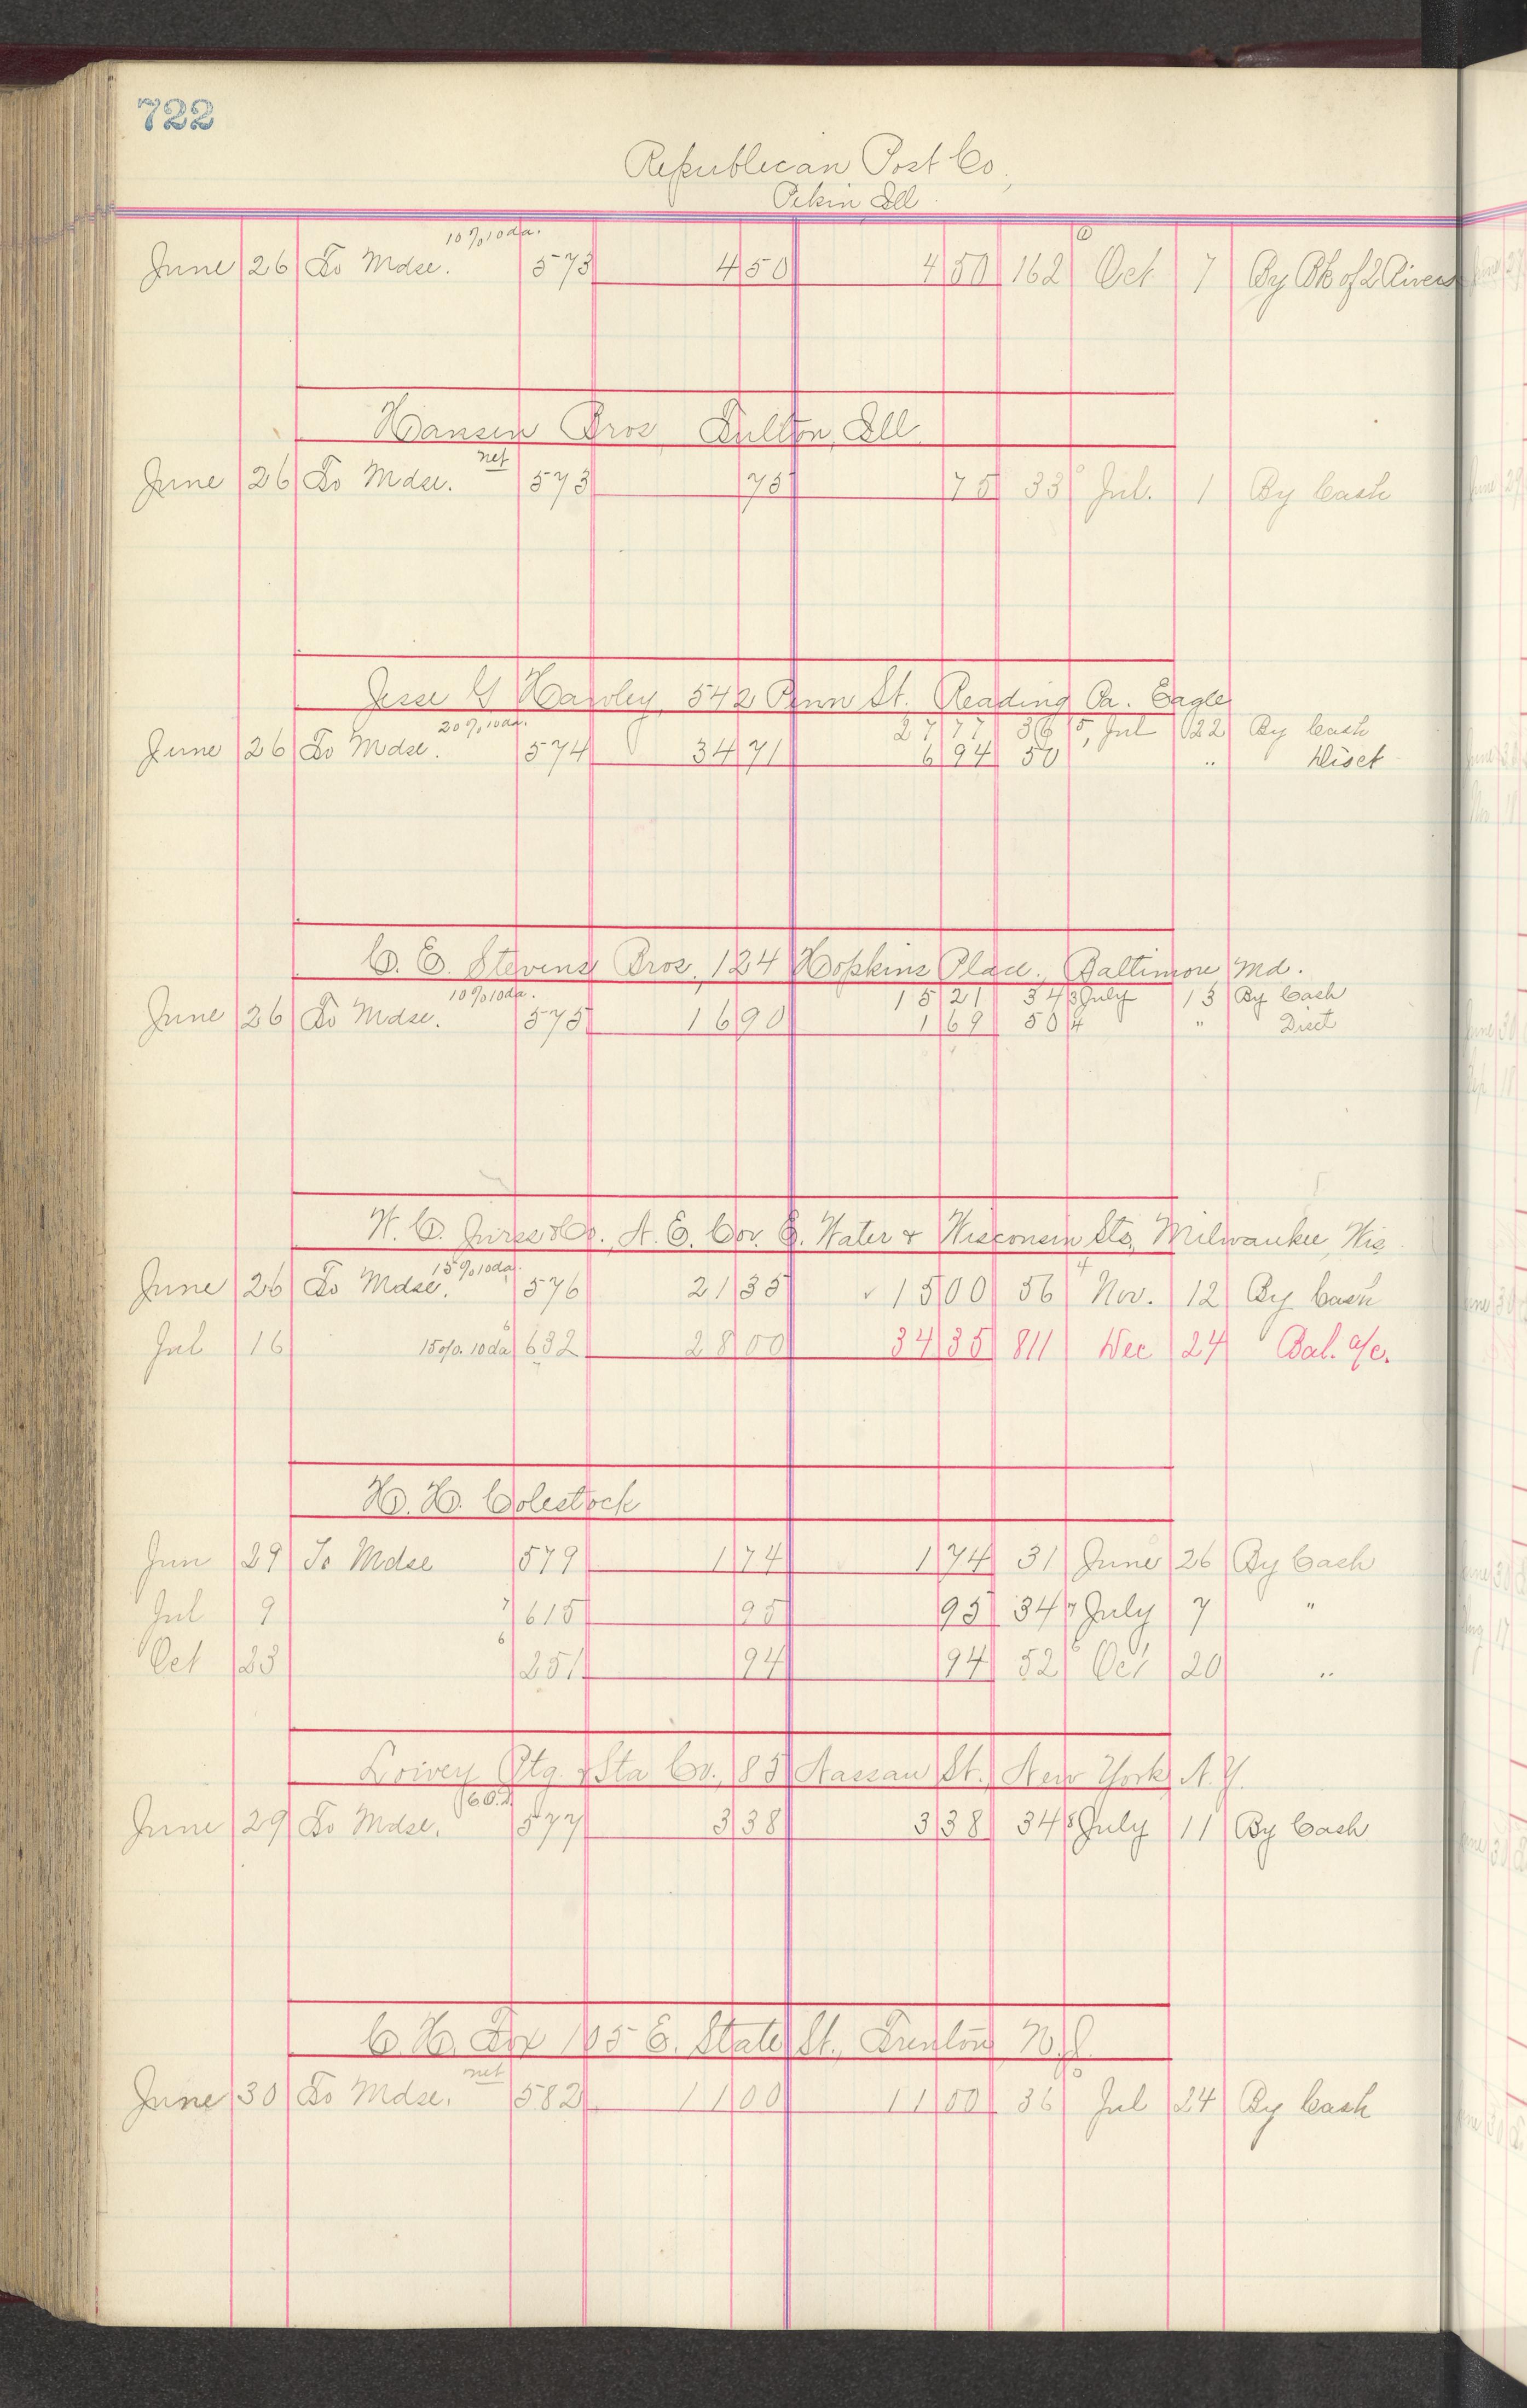 722
Republican Post Co.,
Pekin Ill.
10% 10 da.
June 26 To Mdse. 573 4 50 4 50 162 Oct 7 By Bk of 2 Rivers
Hansen Bros Fulton, Ill
net
June 26 To Mdse. 573 75 75 33 Jul. 1 By Cash
Jesse G Hawley, 542 Penn St. Reading Pa. Eagle
20% 10 da. 27 77 36 5, Jul 22 By Cash
June 26 To Mdse. 574 34 71 6 94 50 " Disct
C. E. Stevens Bros., 124 Hopkins Place., Baltimore Md.
10% 10 da. 15 21 34 3 July 13 By Cash
June 26 To Mdse. 575 16 90 1 69 50 4 " Disct
W. C. Jurss & Co., N. E. Cor. E. Water & Wisconsin Sts, Milwaukee, Wis
15% 10 da. 4
June 26 To Mdse. 576 21 35 ✓ 15 00 56 Nov. 12 By Cash
Jul 16 15% 10 da 6 632 28 00 34 35 811 Dec 24 Bal. a/c.
H. H. Colestock
Jun 29 To Mdse 579 1 74 1 74 31 June 26 By Cash
Jul 9 7 615 95 95 34 7 July 7 "
Oct 23 6 251 94 94 52 6 Oct 20 "
Loivey Ptg & Sta Co., 85 Nassau St., New York, N. Y.
June 29 To Mdse. 577 3 38 3 38 34 8 July 11 By Cash
C. H. Fox 105 E. State St., Trenton, N. J.
net
June 30 To Mdse. 582 11 00 11 00 36 Jul 24 By Cash